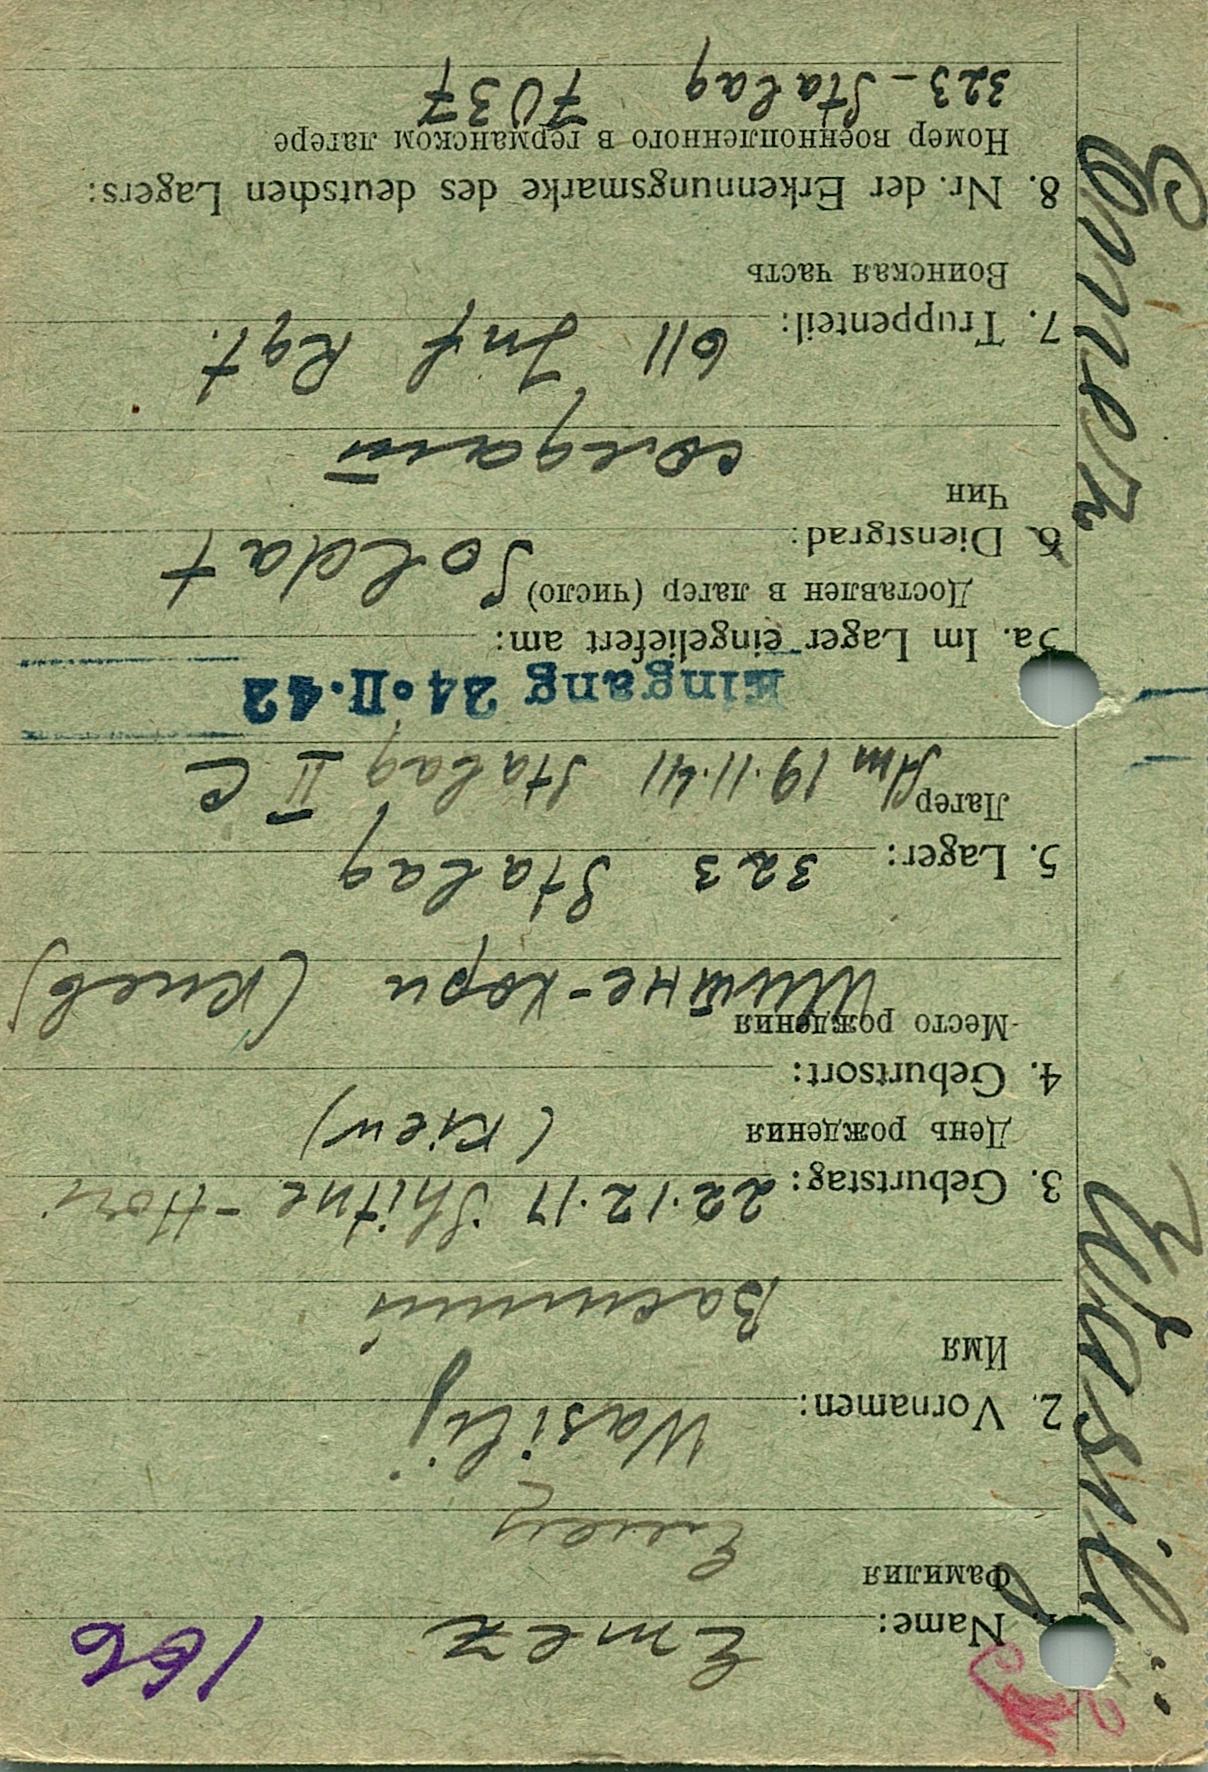 166
1. Name: Emez
Фамилия
Емец
2. Vornamen: Wasilij
Имя
Василий
3. Geburtstag: 22.12.17 Shitne-Hori
День рождения (Kiew)
4. Geburtsort:
Место рождения
Житне-хори (Киев)
5. Lager: 323 Stalag
Лагер Am 19.11.41 Stalag II C
Eingang 24.II.42
5a. Im Lager eingeliefert am:
Доставлен в лагер (число)
6. Dienstgrad: Soldat
Чин
солдат
7. Truppenteil: 611 Inf Rgt.
Воинская часть
8. Nr. der Erkennungsmarke des deutschen Lagers:
Номер военнопленного в германском лагере
323-Stalag 7037
Wasilij